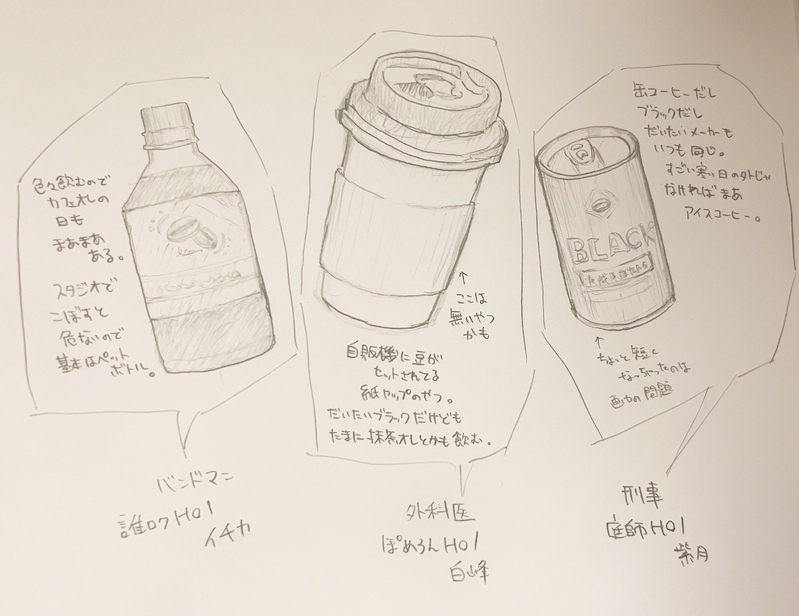 色々飲むので
カフェオレの
日も
まあまあ
ある。
スタジオで
こぼすと
危ないので
基本はペット
ボトル。
バンドマン
誰ロクHO1
イチカ
↑
ここは
無いやつ
かも
自販機に豆が
セットされてる
紙カップのやつ。
だいたいブラックだけども
たまに抹茶オレとかも飲む。
外科医
ぽめろんHO1
白山峰
缶コーヒーだし
ブラックだし
だいたいメーカーも
いつも同じ。
すごい寒い日の外じゃ
なければまあ
アイスコーヒー。
BLACK
↑
ちょっと短く
なっちゃったのは
画力の問題
刑事
庭師HO1
紫月